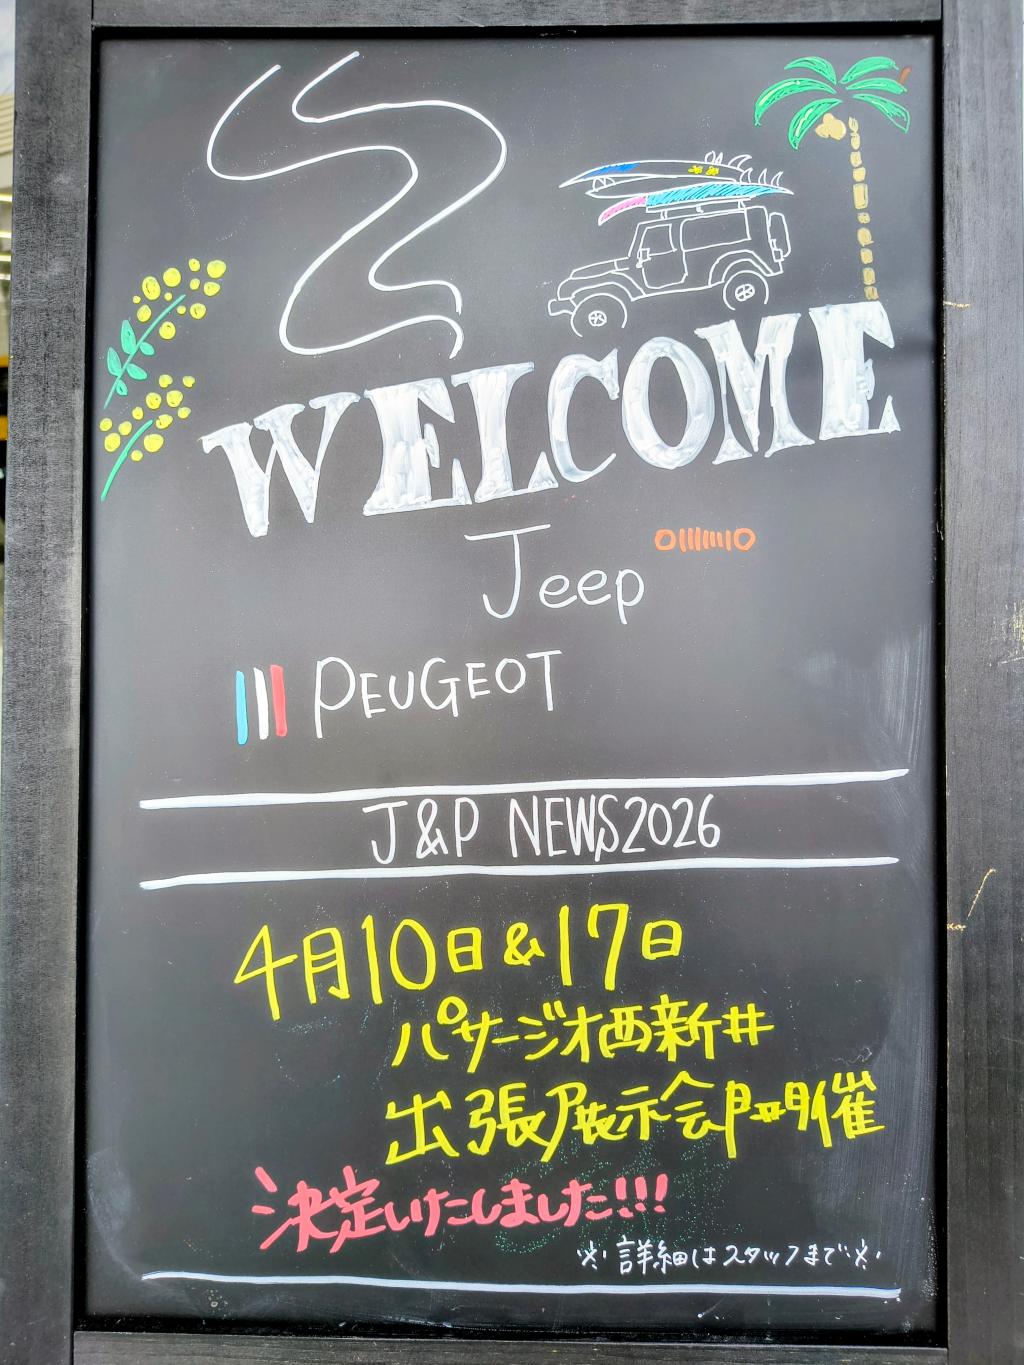 WELCOME
Jeep
PEUGEOT
J&P NEWS2026
4月10日&17日
パサージオ西新井
出張展示会開催
決定いたしました!!!
※詳細はスタッフまで※